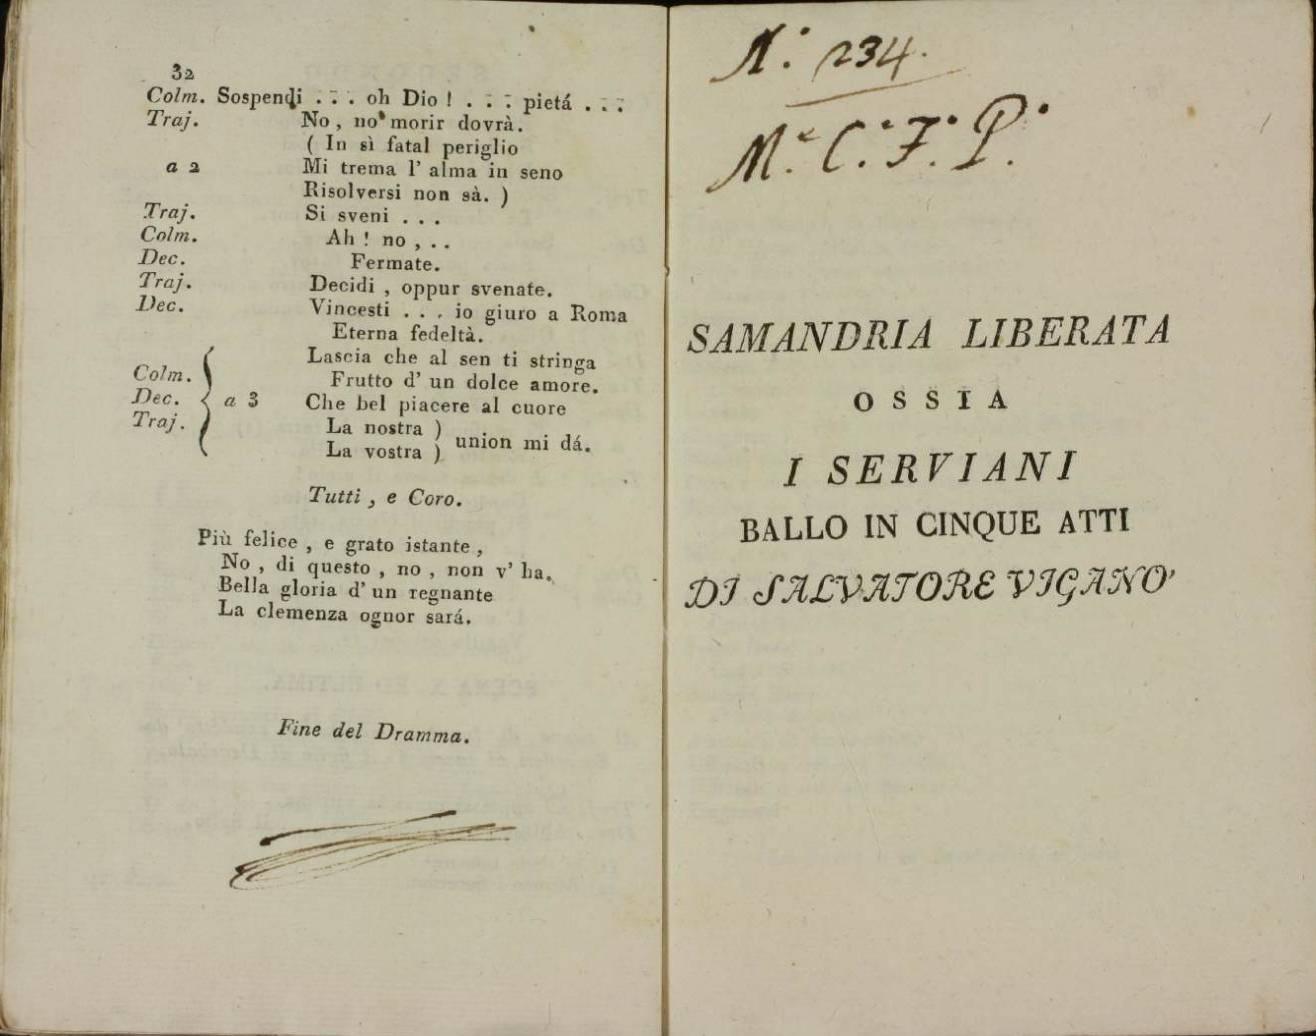 32
Colm. Sospendi . . . oh Dio ! . . . pietá . . .
Traj. No , no morir dovrà.
( In sì fatal periglio
a 2 Mi trema l' alma in seno
Risolversi non sà. )
Traj. Si sveni . . .
Colm. Ah ! no , . .
Dec. Fermate.
Traj. Decidi , oppur svenate.
Dec. Vincesti . . . io giuro a Roma
Eterna fedeltà.
Lascia che al sen ti stringa
Colm. Frutto d' un dolce amore.
Dec. a 3 Che bel piacere al cuore
Traj. La nostra )
La vostra ) union mi dá.
Tutti , e Coro.
Più felice , e grato istante ,
No , di questo , no , non v' ha.
Bella gloria d' un regnante
La clemenza ognor sará.
Fine del Dramma.
N. 234.
M.e C. F. P.
SAMANDRIA LIBERATA
OSSIA
I SERVIANI
BALLO IN CINQUE ATTI
DI SALVATORE VIGANO'